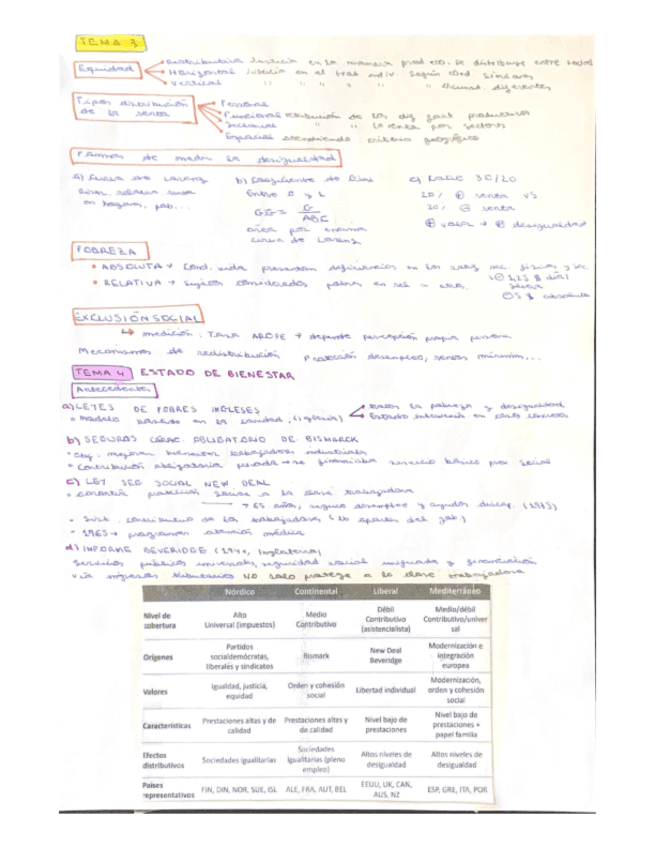 TEMA 3
Equidad
Distributiva Justicia en la manera prod eco. se distribuye entre todos
Horizontal Justicia en el trat indiv. según cond similares
Vertical " " " " " diferentes
Tipos distribución de la renta
Personal
Funcional retribución de los productivos
Sectorial " la renta por sectores
Espacial atendiendo criterio geográfico
Formas de medir la desigualdad
a) Curva de Lorenz
b) Coeficiente de Gini
Entre 0 y 1
GG = G / ABC
área por encima
curva de Lorenz
c) Ratio 80/20
20% ⊕ renta VS
20% ⊖ renta
⊕ valor → ⊕ desigualdad
POBREZA
• ABSOLUTA → Cond. vida presentan deficiencias en las
• RELATIVA → sujetos considerados pobres en rel a
EXCLUSIÓN SOCIAL
↳ medición: TASA AROPE → depende percepción propia persona
Mecanismos de redistribución Protección desempleo, rentas mínimas...
TEMA 4 ESTADO DE BIENESTAR
Antecedentes
a) LEYES DE POBRES INGLESES
• modelo basado en la caridad, (iglesia)
la pobreza y desigualdad
Estado en
b) SEGUROS OBLIGATORIO DE BISMARCK
• Obj. mejorar bienestar trabajadores industriales
• Contribución obligatoria → se financiaba servicio básico
c) LEY SEG SOCIAL NEW DEAL
• Garantía protección social a la clase trabajadora
→ 65 años, seguro desempleo y ayudas
• Sist. contributivo de los trabajadores
• 1965 → programas atención médica
d) INFORME BEVERIDGE ( Inglaterra)
Servicios públicos universales, seguridad social unificada y financiación
vía impuestos tributarios NO solo protege a la clase trabajadora
Nórdico Continental Liberal Mediterráneo
Nivel de cobertura
Alto Universal (impuestos)
Medio Contributivo
Débil Contributivo (asistencialista)
Medio/débil Contributivo/universal
Orígenes
Partidos socialdemócratas, liberales y sindicatos
Bismark
New Deal Beveridge
Modernización e integración europea
Valores
Igualdad, justicia, equidad
Orden y cohesión social
Libertad individual
Modernización, orden y cohesión social
Características
Prestaciones altas y de calidad
Prestaciones altas y de calidad
Nivel bajo de prestaciones
Nivel bajo de prestaciones + papel familia
Efectos distributivos
Sociedades igualitarias
Sociedades igualitarias (pleno empleo)
Altos niveles de desigualdad
Altos niveles de desigualdad
Países representativos
FIN, DIN, NOR, SUE, ISL
ALE, FRA, AUT, BEL
EEUU, UK, CAN, AUS, NZ
ESP, GRE, ITA, POR